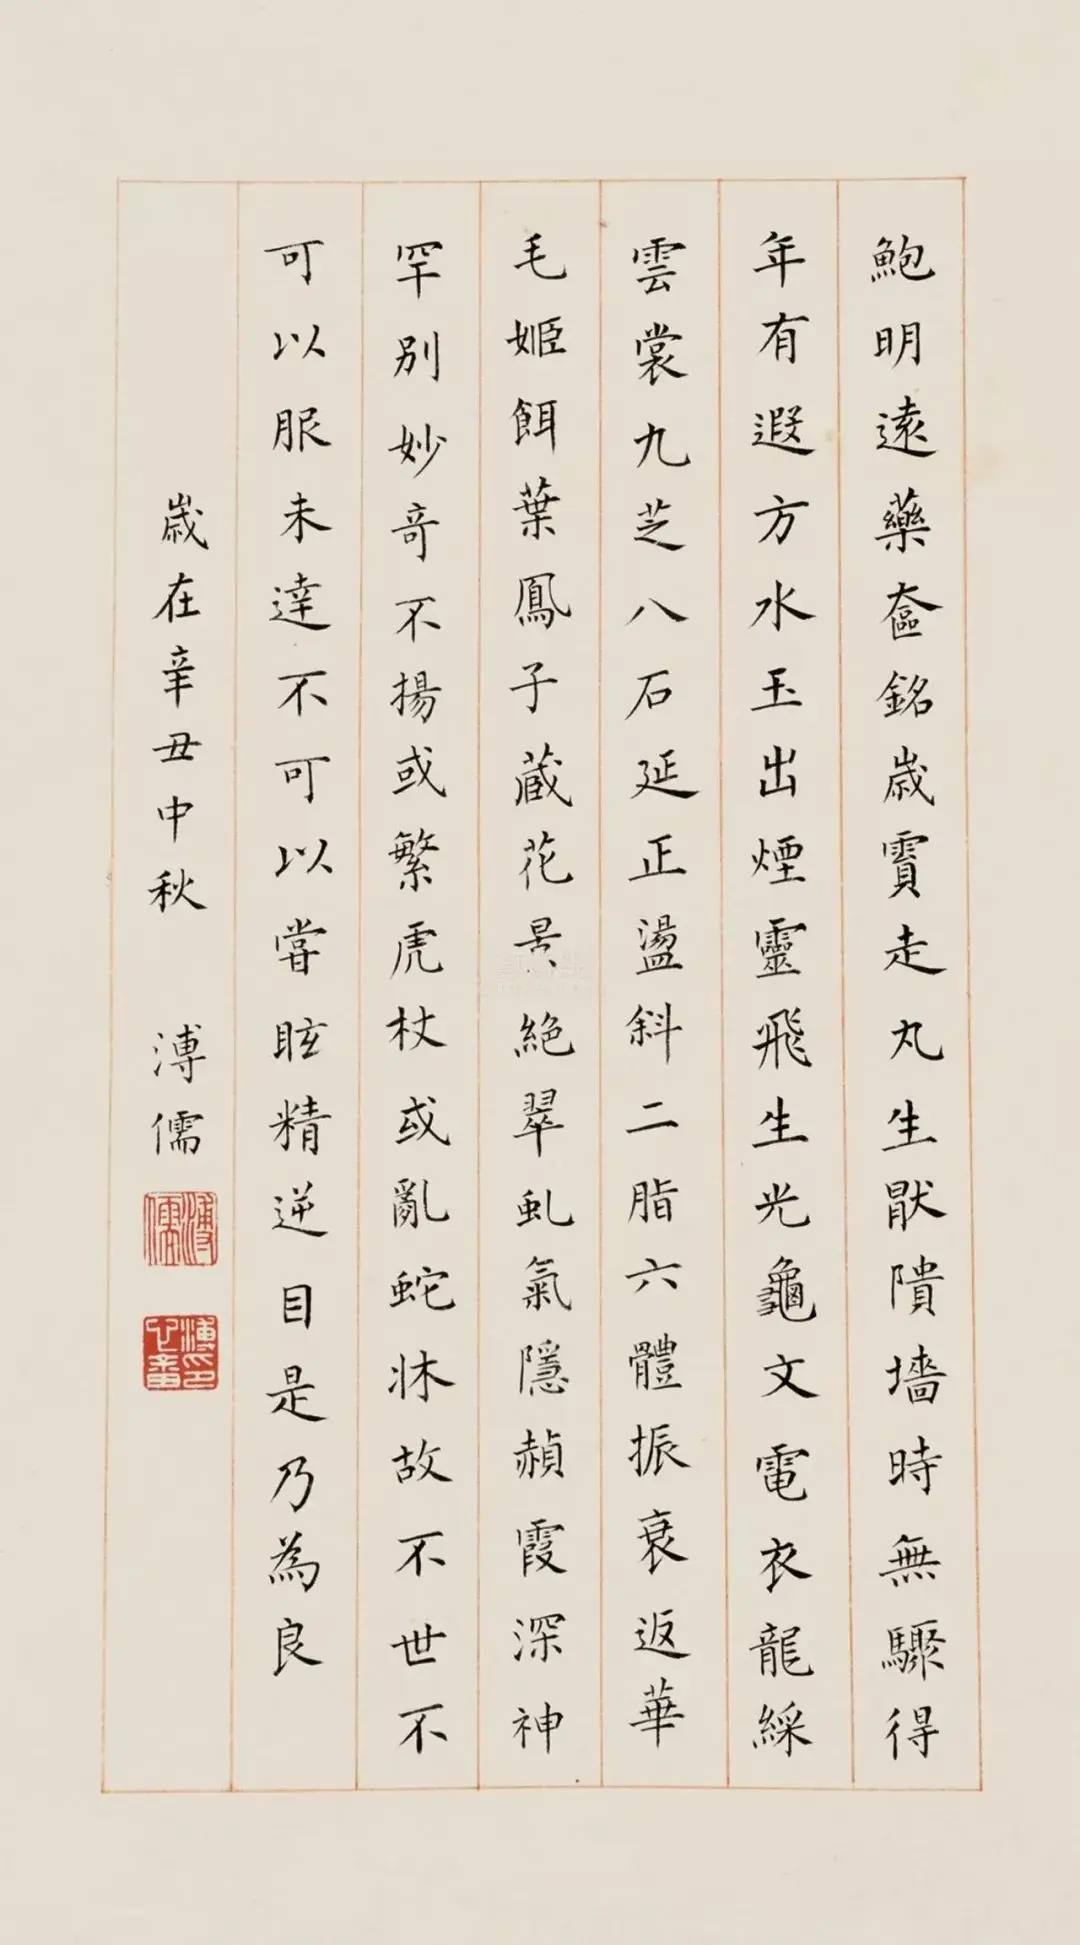 鮑明遠藥奩銘歲霣走丸生猒隤墻時無驟得
年有遐方水玉出煙靈飛生光龜文電衣龍綵
雲裳九芝八石延正盪斜二脂六體振衰返華
毛姬餌葉鳳子蔵花景絕翠虬氣隱赬霞深神
罕別妙奇不揚或繁虎杖或亂蛇牀故不世不
可以服未達不可以嘗眩精逆目是乃為良
歲在辛丑中秋 溥儒
溥儒
溥心畬印